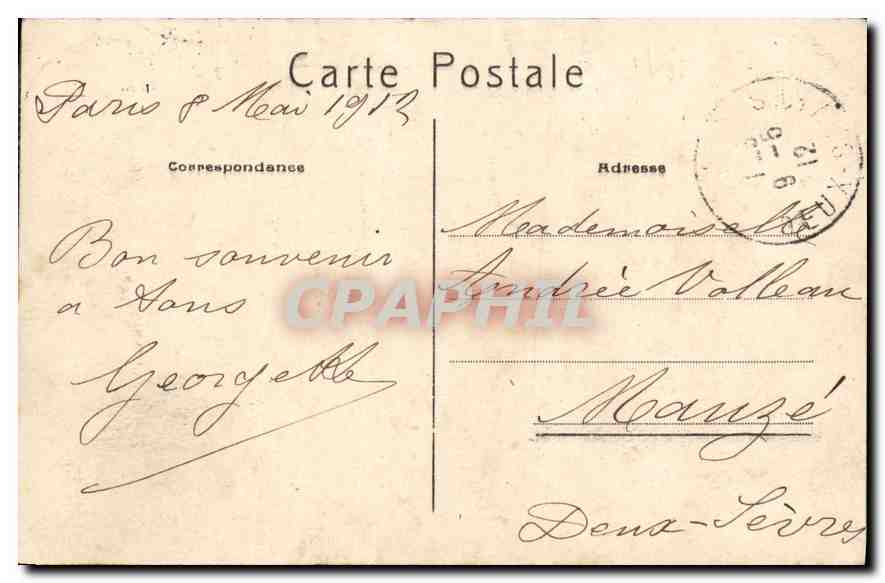 Carte Postale
Paris 8 Mai 1912
Correspondance
Adresse
Bon souvenir
a tous
Georgette
Mademoiselle
Andrée Valleau
Mauzé
Deux-Sèvres
CPAPHIL